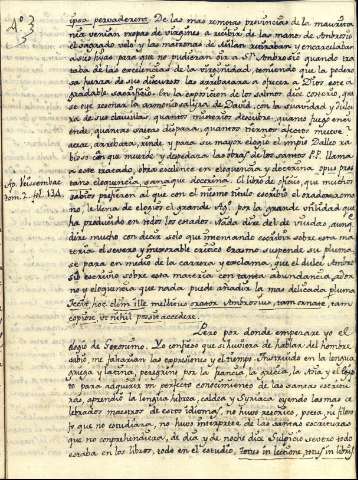 Aº 3
3
5
ipsa pervaderem. De las mas remotas provincias de la maurita-
nia venian tropas de virgines a recibir de las manos de Ambrosio
el sagrado velo y las matronas de Milan retiraban y encarcelaban
a sus hijas para que no pudieran oir a Sn. Ambrosio quando tra
taba de las excelencias de la virginidad, temiendo que la podero
sa fuerza de sus discursos las arrebatara a ofrecer a Dios este a
gradable sacrificio. En la exposicion de los salmos dice
se oye resonar la armoniosa lyra de David, con la suavidad y dulzu
ra de sus clausulas, quantos misterios descubre, quanto fuego enci
ende, quantas saetas dispara, quantos tiernos afectos mueve
atrae, arrebata, rinde, y para su mayor elogio el impio Dalleo ra
bioso con que muerde y despedaza las obras de los santos P.P. llama
a este tratado, obra excelente en eloquencia y doctrina opus pres
tans eloquencia, sanaque doctrina. el libro de oficios, que muchos
sabios prefieren al que con el mismo titulo escribio el orador roma
no, le llena de elogios el grande Agn. por la grande utilidad que
ha producido en todos los estados. Nada dire del de viudas, aunq
dire mucho con decir solo que intentando escribir sobre esta ma
teria el severo y inexorable critico Erasmo suspende su pluma
se para en medio de la carrera y exclama, que el dulce Ambro
sio escribio sobre esta materia con tanta abundancia, ador
no y eloquencia que nada puede añadir la mas delicada pluma
fecit hoc olim ille mellitus orator Ambrosius, tam ornate, tam
copiose, ut nihil possit accedere.
Ap. Veissembac
tom. 2. fol. 134.
Pero por donde empezare yo el
elogio de Geronimo. Yo confieso que si huviera de hablar del hombre
sabio me faltarian las expresiones y el tiempo. Instruido en la lengua
griega y latina, peregrino por la francia la grecia, la Asia y el Egip
to para adquirir un perfecto conocimiento de las santas escritu
ras, aprendio la lengua hebrea, caldea y Syriaca oyendo los mas ce
lebrados maestros de estos idiomas, no huvo retorico, poeta, ni filoso
fo que no estudiara, no huvo interprete de las santas escrituras
que no comprehendiera, de dia y de noche dice Sulpicio severo todo
estaba en los libros, todo en el estudio, totus in lectione, totus in libris